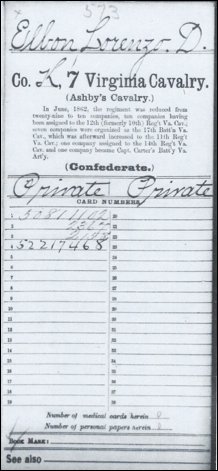 573
Elbon Lorenzo D.
Co. K, 7 Virginia Cavalry.
(Ashby's Cavalry.)
In June, 1862, the regiment was reduced from
twenty-nine to ten companies, ten companies having
been assigned to the 12th (formerly 10th) Reg't Va. Cav.,
seven companies were organized as the 17th Batt'n Va.
Cav., which was afterward increased to the 11th Reg't
Va. Cav.; one company assigned to the 14th Reg't Va.
Cav. and one company became Capt. Carter's Batt'y Va.
Art'y.
(Confederate.)
Private Private
CARD NUMBERS.
1 50811102
2
3
4 52217468
Number of medical cards herein 0
Number of personal papers herein 0
BOOK MARK:
See also